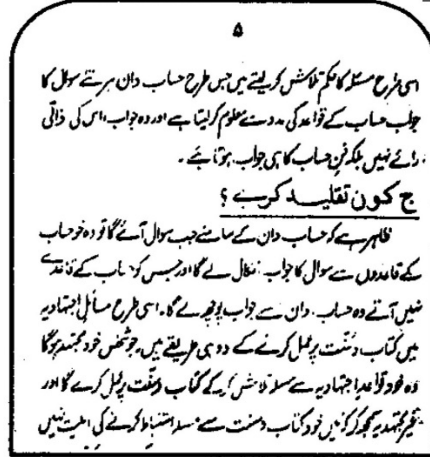 ۵
اسی طرح مسئلہ کا حکم تلاش کر لیتے ہیں جس طرح حساب دان ہر نئے سوال کا
جواب حساب کے قواعد کی مدد سے معلوم کرلیتا ہے اور وہ جواب اس کی ذاتی
رائے نہیں بلکہ فن حساب کا ہی جواب ہوتا ہے ۔
ج کون تقلید کرے ؟
ظاہر ہے کہ حساب دان کے سامنے جب سوال آئے گا تو وہ خود حساب
کے قاعدوں سے سوال کا جواب نکال لے گا اور جس کو حساب کے قاعدے
نہیں آتے وہ حساب دان سے جواب پوچھ لے گا۔ اسی طرح مسائل اجتہادیہ
میں کتاب و سنت پر عمل کرنے کے دو ہی طریقے ہیں۔ جو شخص خود مجتہد ہوگا
وہ خود قواعد اجتہادیہ سے مسئلہ تلاش کرکے کتاب و سنت پر عمل کرے گا اور
غیر مجتہد یہ سمجھ کر کہ میں خود کتاب و سنت سے مسئلہ استنباط کرنے کی اہلیت نہیں